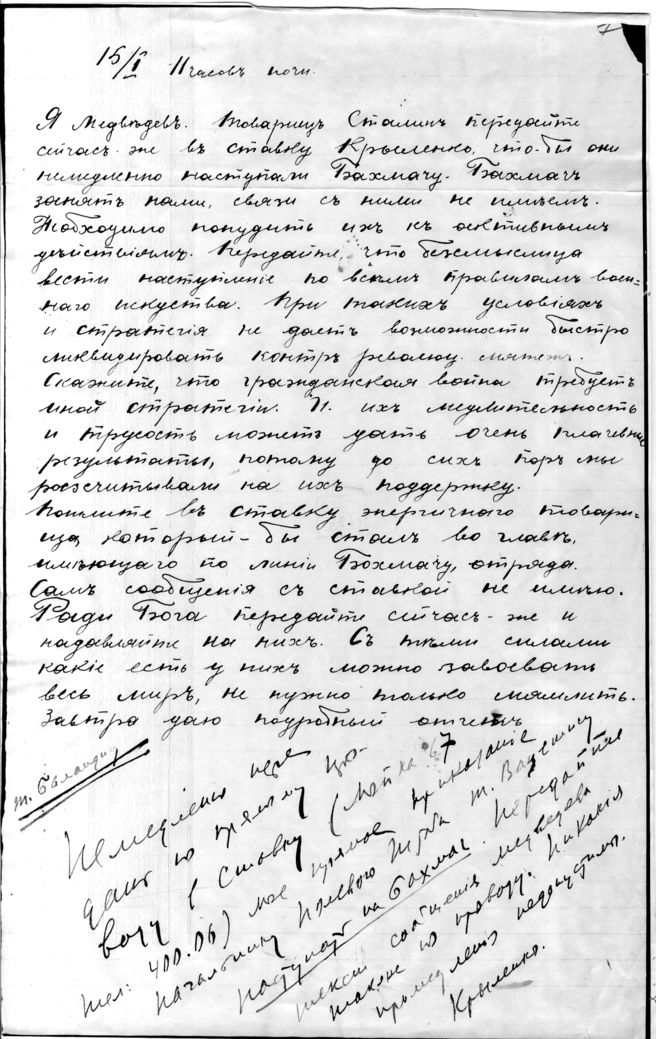 7
15/I 11 часовъ ночи.
Я Медвѣдевъ. Товарищъ Сталинъ передайте
сейчасъ-же въ ставку Крыленко, что-бы они
немедленно наступали Бахмачу. Бахмачъ
занятъ нами, связи съ ними не имѣемъ.
Необходимо понудить ихъ къ активнымъ
дѣйствіямъ. Передайте, что безсмыслица
вести наступленіе по всѣмъ правиламъ воен=
наго искуства. При такихъ условіяхъ
и стратегія не даетъ возможности быстро
ликвидировать контръ революц. мятежъ.
Скажите, что гражданская война требуетъ
иной стратегіи. И ихъ медлительность
и трусость можетъ дать очень плачевные
результаты, потому до сихъ поръ мы
разсчитывали на ихъ поддержку.
Пошлите въ ставку энергичнаго товари=
ща, который-бы сталъ во главѣ,
имѣющаго по линіи Бахмачу, отряда.
Самъ сообщенія съ ставкой не имѣю.
Ради Бога передайте сейчасъ-же и
надавляйте на нихъ. Съ тѣми силами
какіе есть у нихъ можно завоевать
весь миръ, не нужно только мямлить.
Завтра даю подробный отчетъ
т.
Немедленно пере
дать по прямому про-
воду в Ставку (
тел: 400.06) мое прямое приказаніе
Начальнику Полевого Штаба т.
наступать на Бахмач. Передайте
текст сообщенія Медведева
также по проводу. Никакія
промедленія недопустимы.
Крыленко.